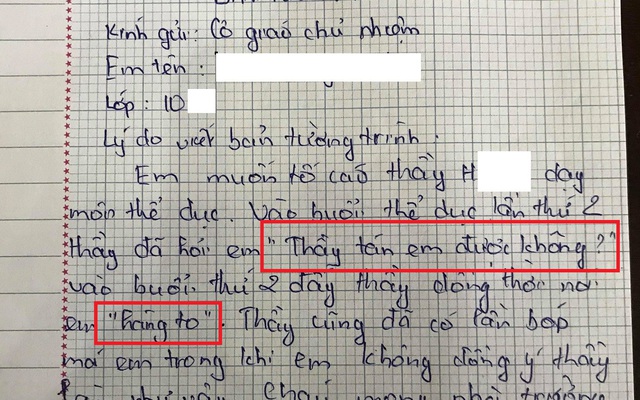 Kính gửi: Cô giáo chủ nhiệm
Em tên :
Lớp : 10
Lý do viết bản tường trình :
Em muốn tố cáo thầy H dạy
môn thể dục. Vào buổi thể dục lần thứ 2
thầy đã hỏi em "Thầy tán em được không?"
vào buổi thứ 2 đấy thầy đồng thời nói
em "hàng to". Thầy cũng đã có lần bóp
má em trong khi em không đồng ý thầy